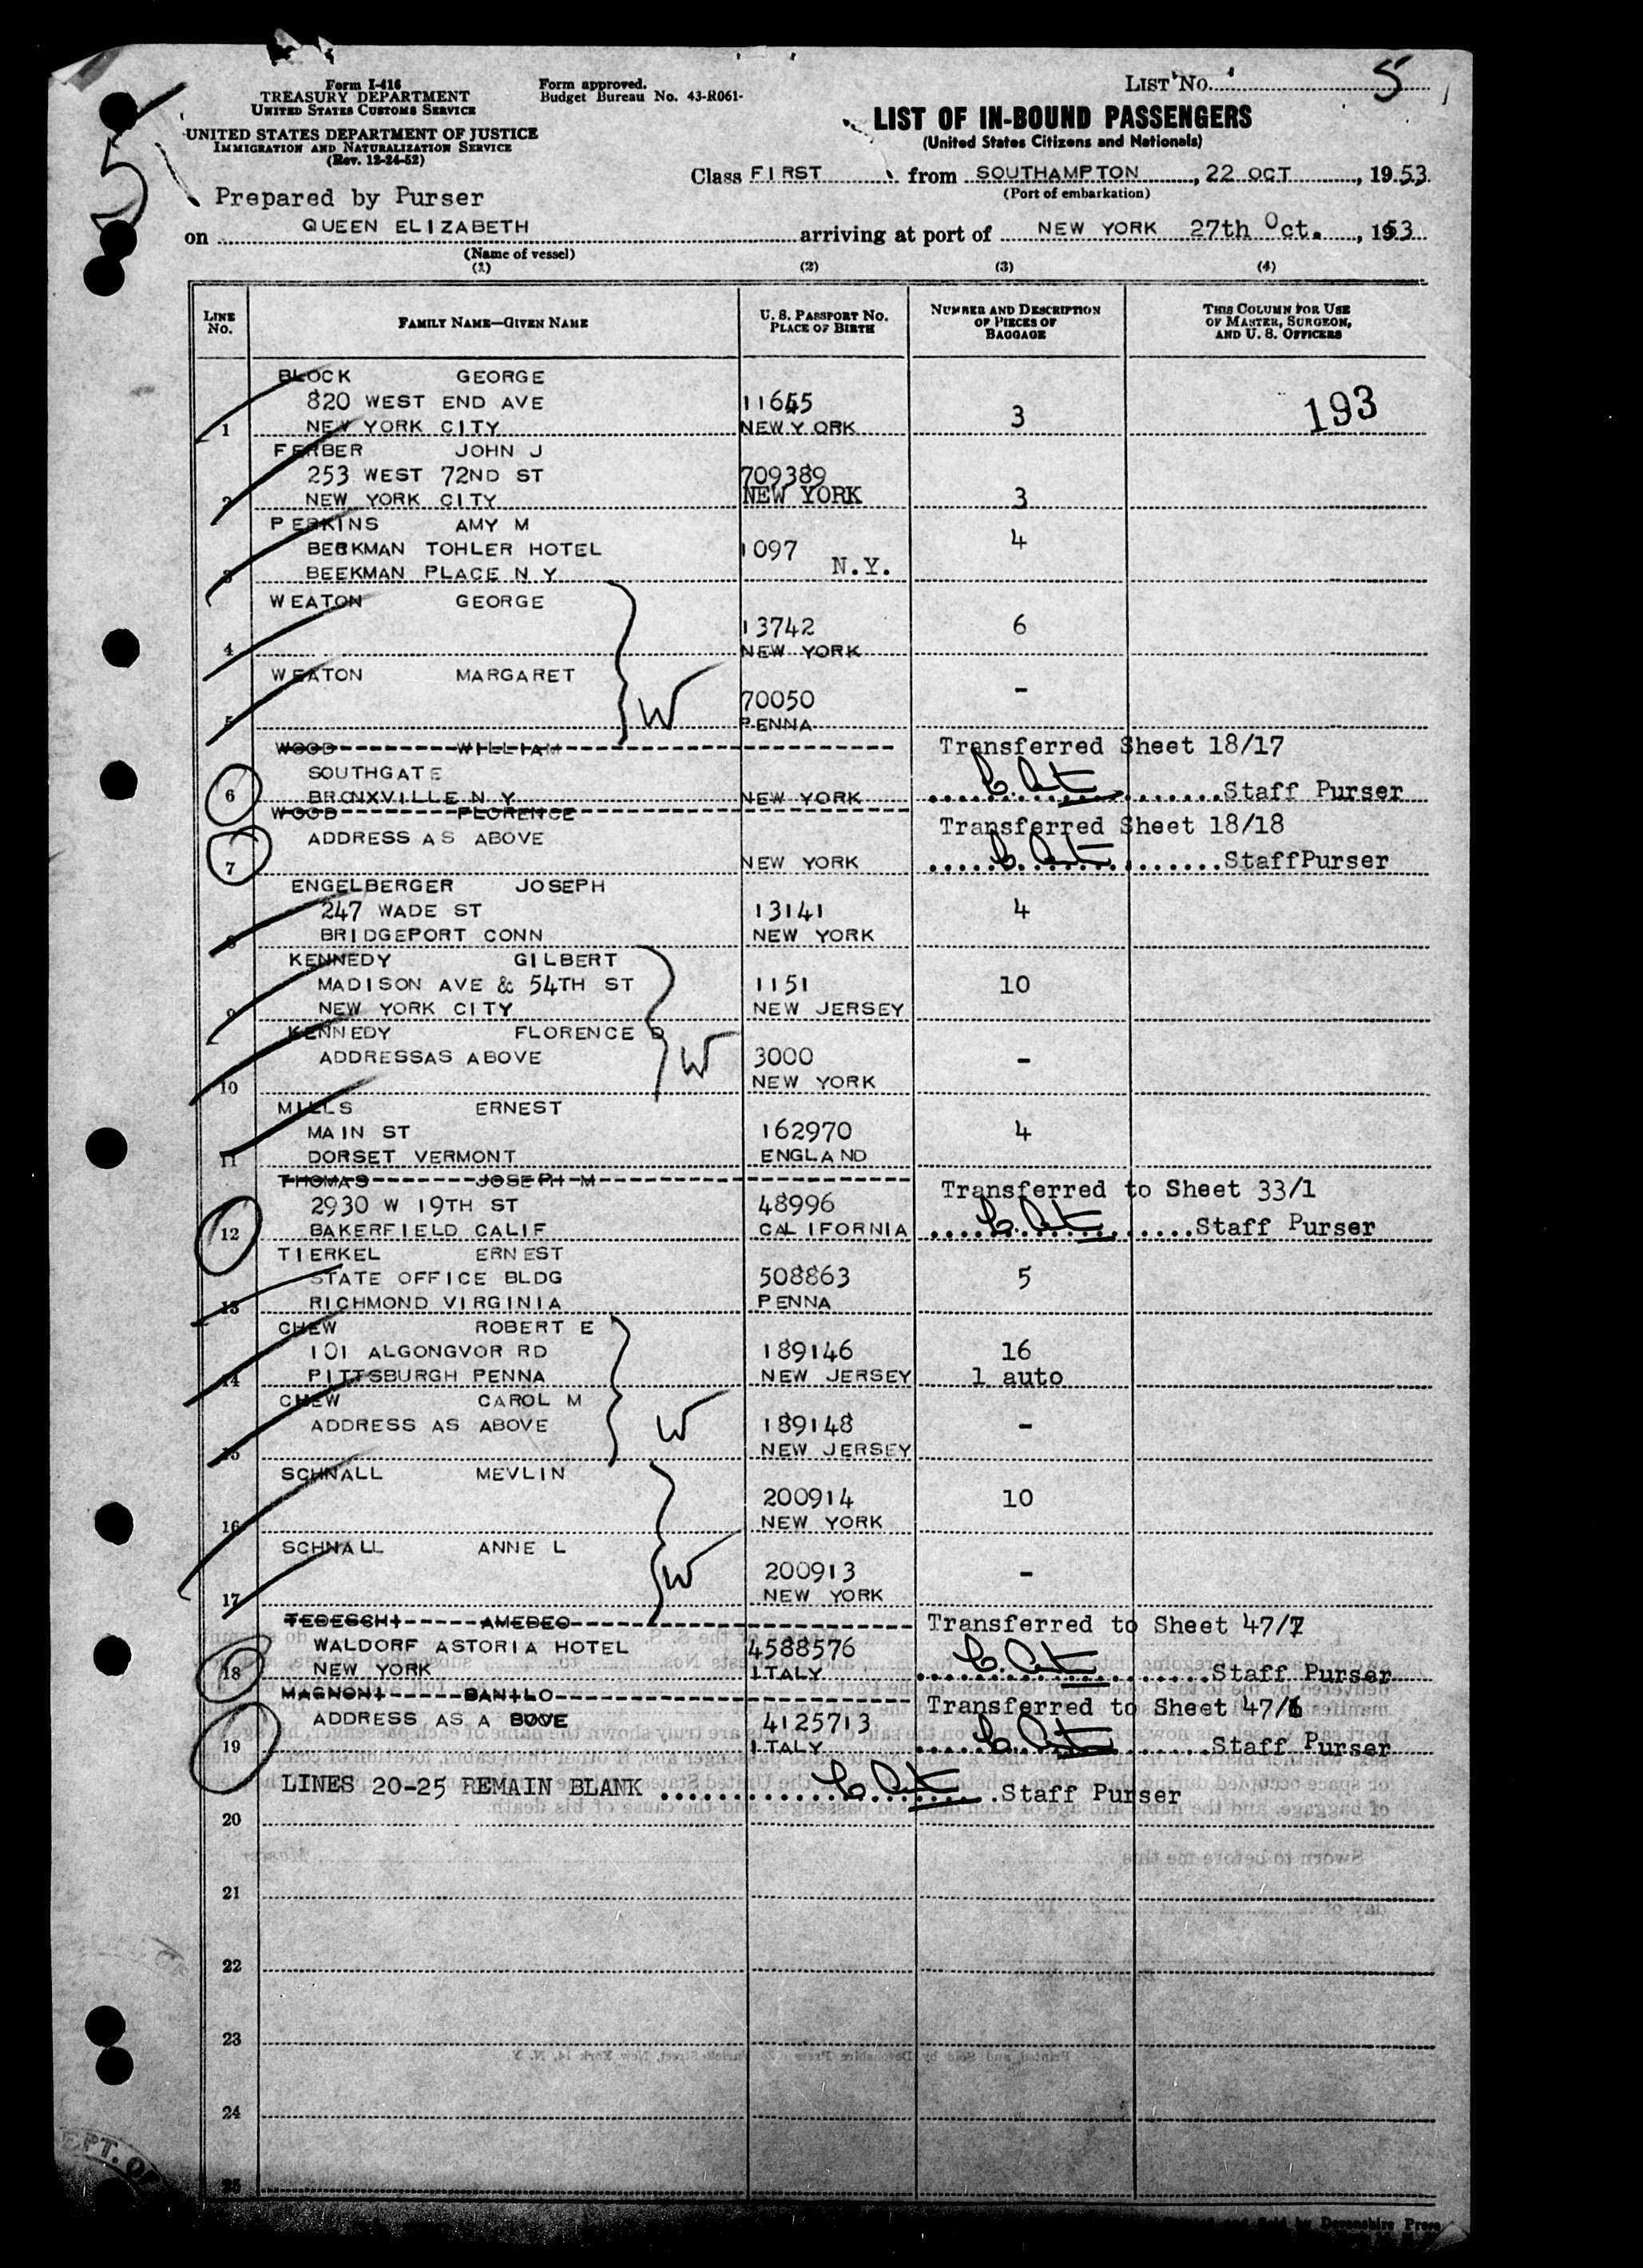 Form I-416
TREASURY DEPARTMENT
UNITED STATES CUSTOMS SERVICE
UNITED STATES DEPARTMENT OF JUSTICE
IMMIGRATION AND NATURALIZATION SERVICE
(Rev. 12-24-52)
Form approved.
Budget Bureau No. 43-R061-
LIST No. 5
5
LIST OF IN-BOUND PASSENGERS
(United States Citizens and Nationals)
Class FIRST from SOUTHAMPTON, 22 OCT, 1953
(Port of embarkation)
Prepared by Purser
on QUEEN ELIZABETH arriving at port of NEW YORK 27th Oct., 1953
(Name of vessel)
(1) (2) (3) (4)
LINE No. FAMILY NAME—GIVEN NAME U. S. PASSPORT No. PLACE OF BIRTH NUMBER AND DESCRIPTION OF PIECES OF BAGGAGE THIS COLUMN FOR USE OF MASTER, SURGEON, AND U. S. OFFICERS
BLOCK GEORGE
820 WEST END AVE 11645 3 193
1 NEW YORK CITY NEW Y ORK
FERBER JOHN J
253 WEST 72ND ST 709389
2 NEW YORK CITY NEW YORK 3
PERKINS AMY M 4
BEEKMAN TOHLER HOTEL 1097
3 BEEKMAN PLACE N Y N.Y.
WEATON GEORGE
13742 6
4 NEW YORK
WEATON MARGARET -
70050
5 W PENNA
WOOD WILLIAM Transferred Sheet 18/17
SOUTHGATE
6 BRONXVILLE N Y NEW YORK Staff Purser
WOOD FLORENCE Transferred Sheet 18/18
ADDRESS AS ABOVE
7 NEW YORK StaffPurser
ENGELBERGER JOSEPH
247 WADE ST 13141 4
8 BRIDGEPORT CONN NEW YORK
KENNEDY GILBERT
MADISON AVE & 54TH ST 1151 10
9 NEW YORK CITY NEW JERSEY
KENNEDY FLORENCE B
ADDRESSAS ABOVE W 3000 -
10 NEW YORK
MILLS ERNEST
MAIN ST 162970 4
11 DORSET VERMONT ENGLAND
THOMAS JOSEPH M Transferred to Sheet 33/1
2930 W 19TH ST 48996
12 BAKERFIELD CALIF CALIFORNIA Staff Purser
TIERKEL ERNEST
STATE OFFICE BLDG 508863 5
13 RICHMOND VIRGINIA PENNA
CHEW ROBERT E
101 ALGONGVOR RD 189146 16
14 PITTSBURGH PENNA NEW JERSEY 1 auto
CHEW CAROL M
ADDRESS AS ABOVE W 189148 -
15 NEW JERSEY
SCHNALL MEVLIN
200914 10
16 NEW YORK
SCHNALL ANNE L
W 200913 -
17 NEW YORK
TEDESCHI AMEDEO Transferred to Sheet 47/7
WALDORF ASTORIA HOTEL 4588576
18 NEW YORK ITALY Staff Purser
MAGNONI DANILO Transferred to Sheet 47/6
ADDRESS AS A BOVE 4125713
19 ITALY Staff Purser
LINES 20-25 REMAIN BLANK Staff Purser
20
21
22
23
24
25
EPT. OF
Sold by Devonshire Press